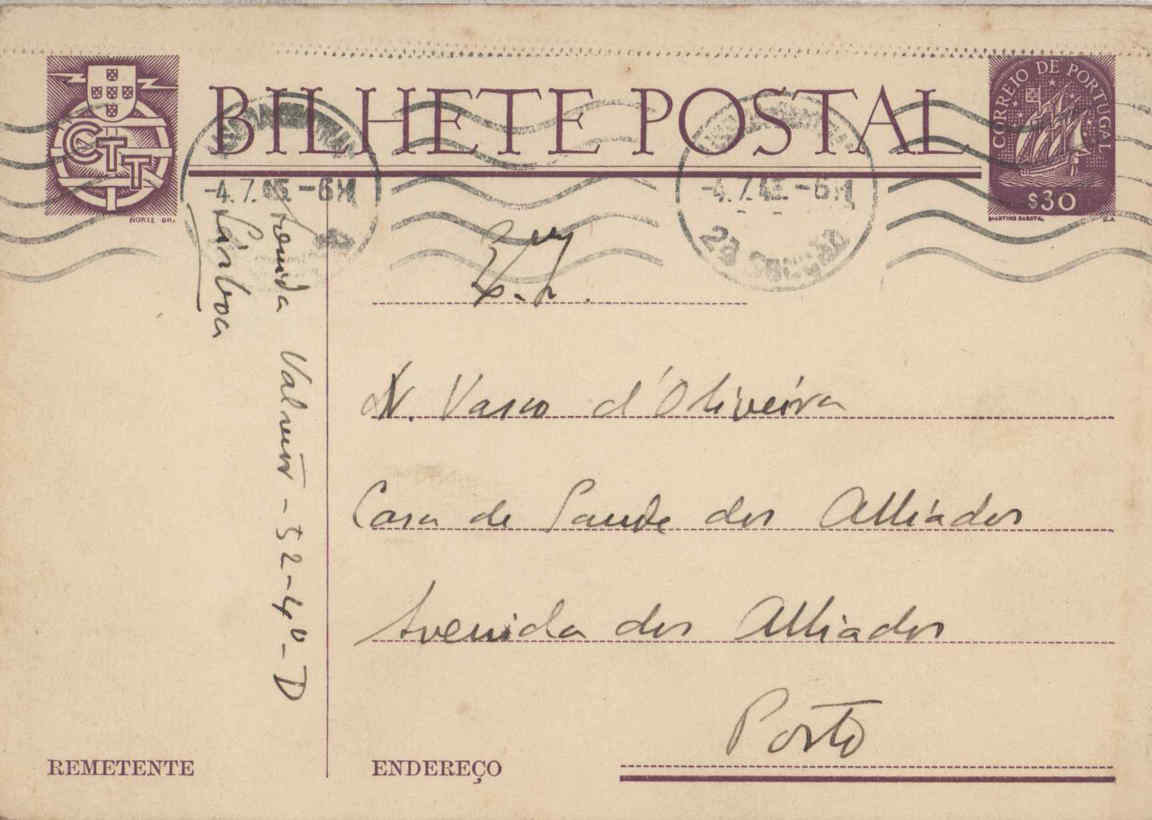 BILHETE POSTAL
CTT
CORREIO DE PORTUGAL
$30
-4.7. -6M
-4.7.4 -6M
2ª SECÇÃO
Vasco d'Oliveira
Casa de Saude dos Alliados
Avenida dos Alliados
Porto
Avenida Valmôr - 52-4º-D
Lisboa
REMETENTE
ENDEREÇO